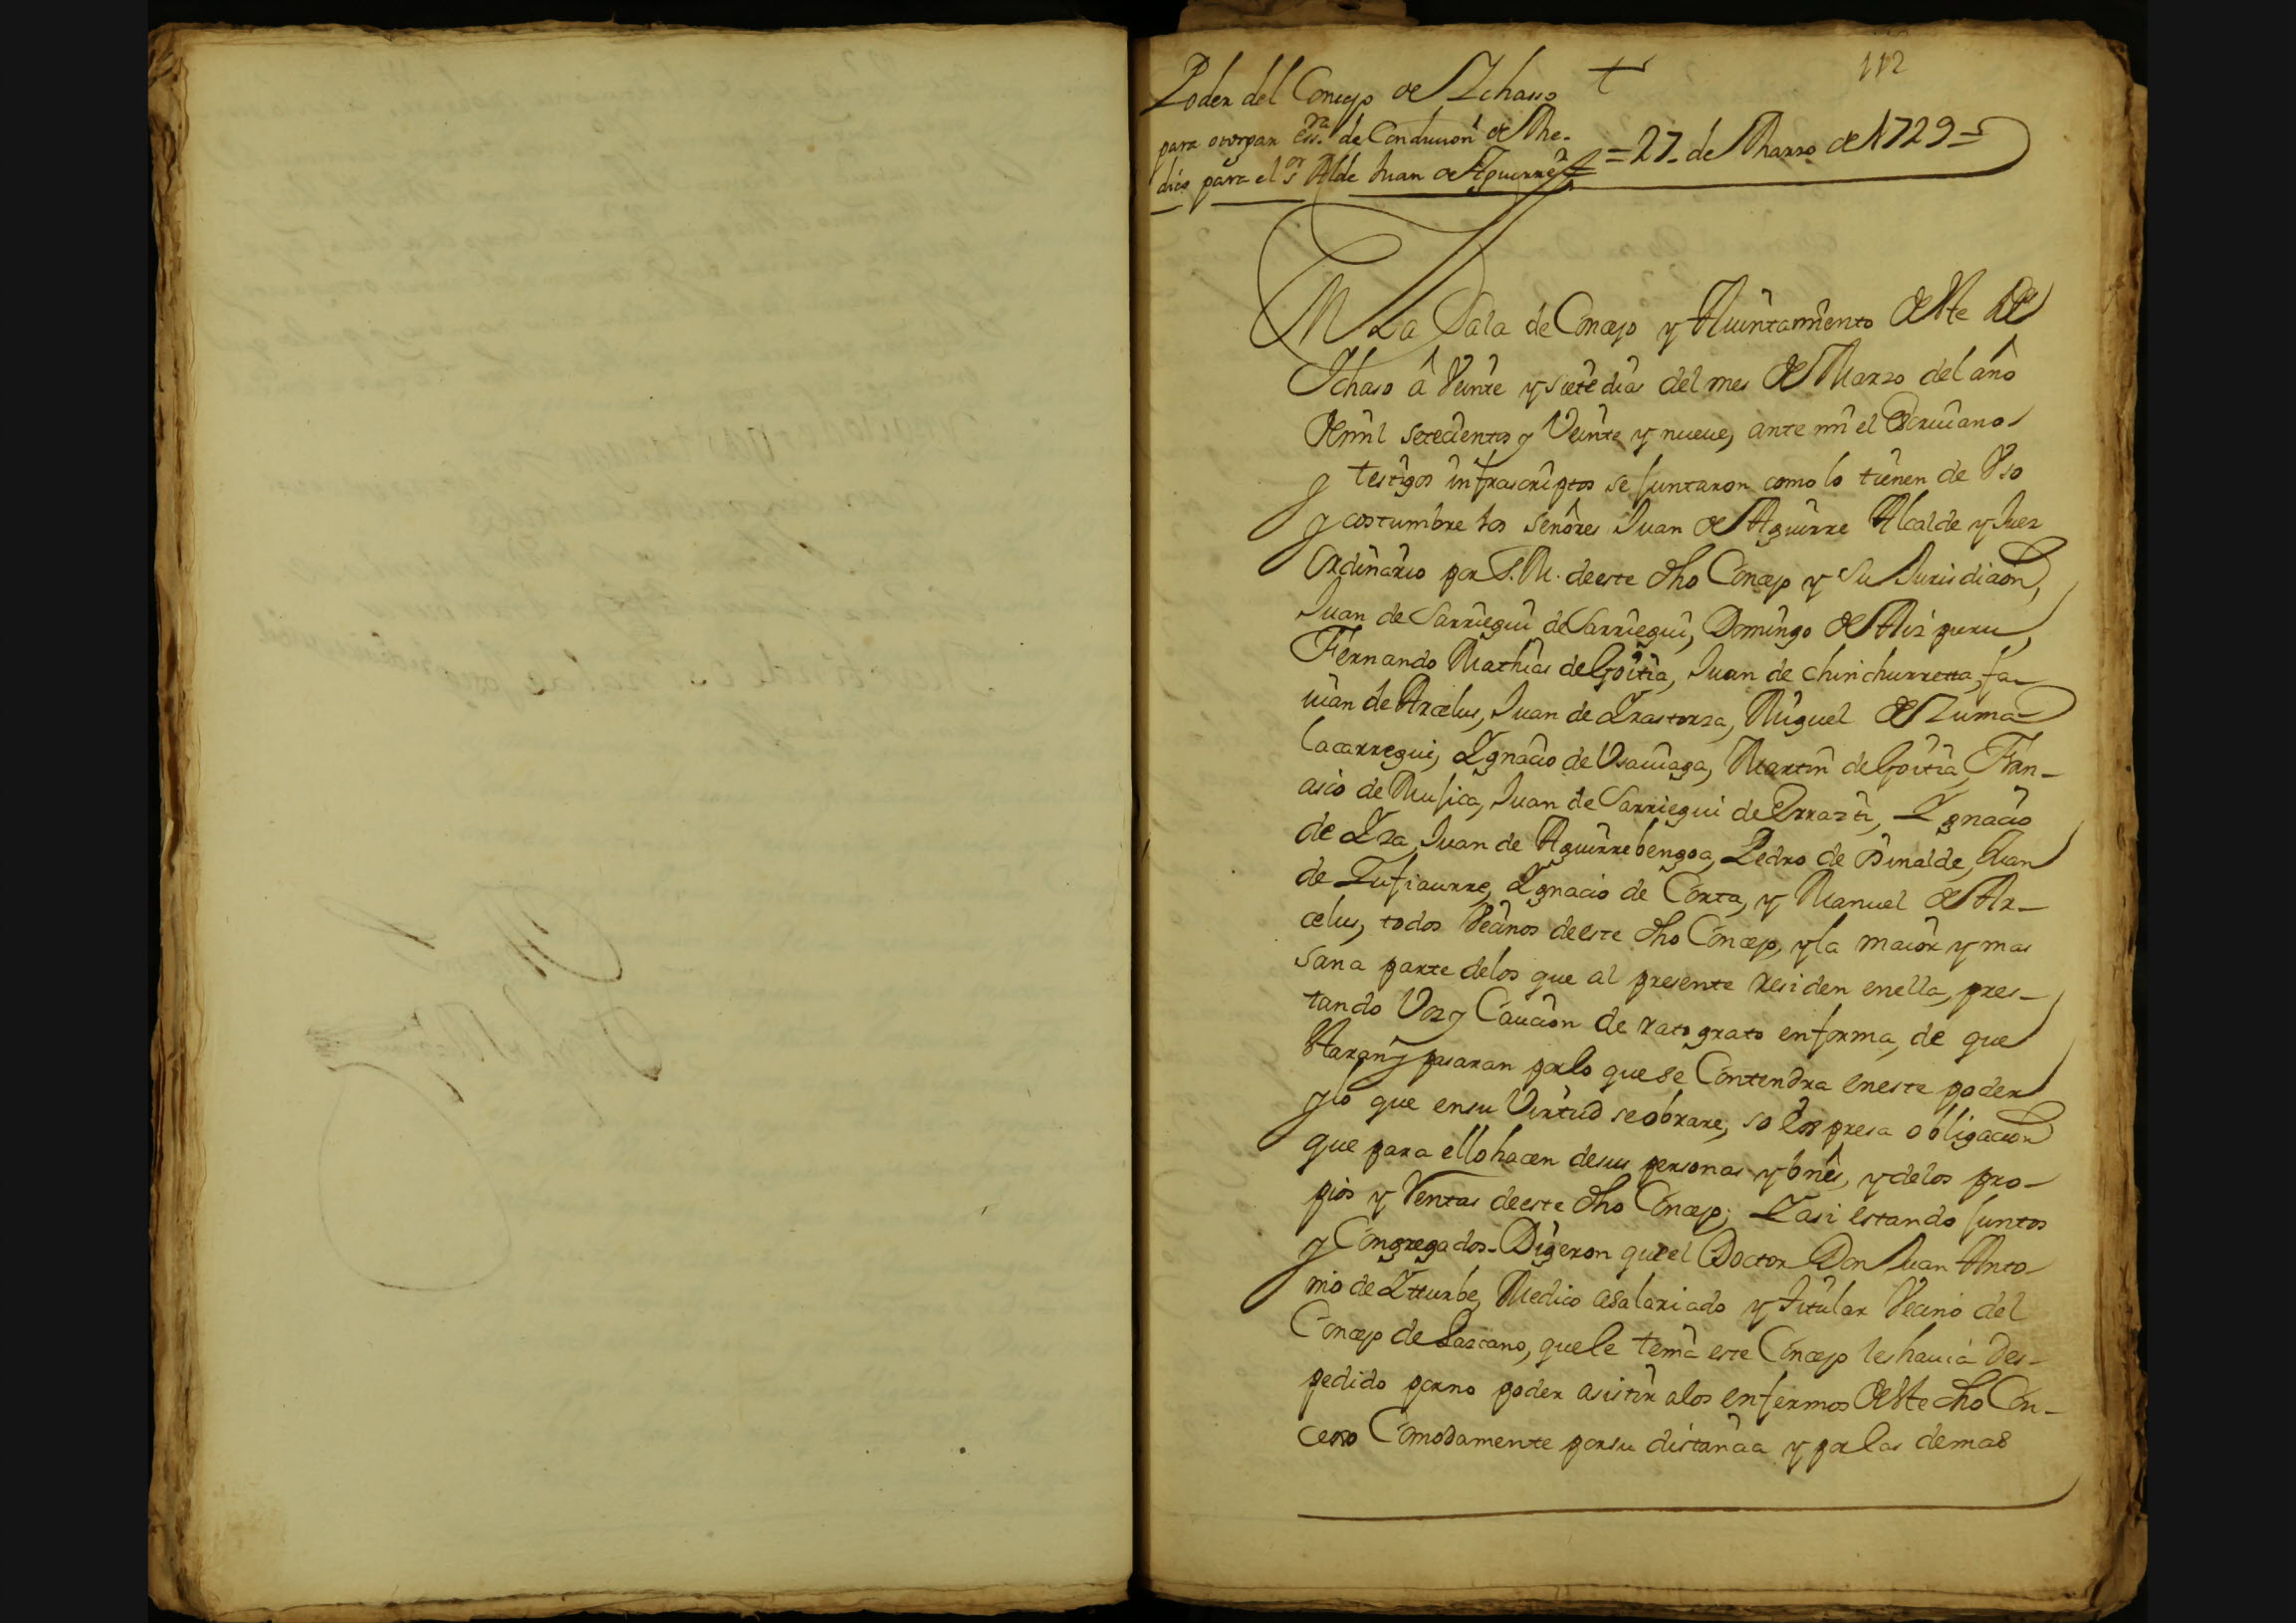 112
Poder del Concejo de Ichasso
para otorgar essra. de Conducion de Me-
dico para el sor Alde Juan de Aguirre = 27. de Marzo de 1729 =
En La Sala de Concejo y Aiuntamiento de este de
Ichaso â Veinte y siete dias del mes de Marzo del año
de mil setecientos y Veinte y nueve, ante mi el Escriuano
y testigos infrascriptos se juntaron como lo tienen de Vso
y costumbre los señores Juan de Aguirre Alcalde y Juez
Ordinario por S.M. de este dho Concejo y su Jurisdicion,
Juan de Sarriegui de Sarriegui, Domingo de Aizpuru,
Fernando Mathias de Goitia, Juan de chinchurretta, fa-
uian de Arcelus, Juan de Irastorza, Miguel de Zuma-
lacarregui, Ignacio de Vsauiaga, Martin de Goitia, Fran-
cisco de Mujica, Juan de Sarriegui de Errazti, Ignacio
de Iza, Juan de Aguirrebengoa, Pedro de Binalde, Juan
de Zufiaurre, Ignacio de Corta, y Manuel de Ar-
celus, todos Vecinos de este dho Concejo, y la maior y mas
sana parte de los que al presente residen en ella, pres-
tando Voz y Caucion de rato grato en forma, de que
Staran y pasaran por lo que se Contendra en este poder
y lo que en su Virtud se obrare, so Expresa obligacion
que para ello hacen de sus personas y bnes, y de los pro-
pios y Rentas de este dho Concejo; Y asi estando juntos
y Congregados. Digeron que el Doctor Don Juan Anto-
nio de Itturbe, Medico asalariado y titular Vecino del
Concejo de Lazcano, que le tenia este Concejo les hauia des-
pedido por no poder asistir a los enfermos de este dho Con-
cejo Comodamente por su distancia y por las demas